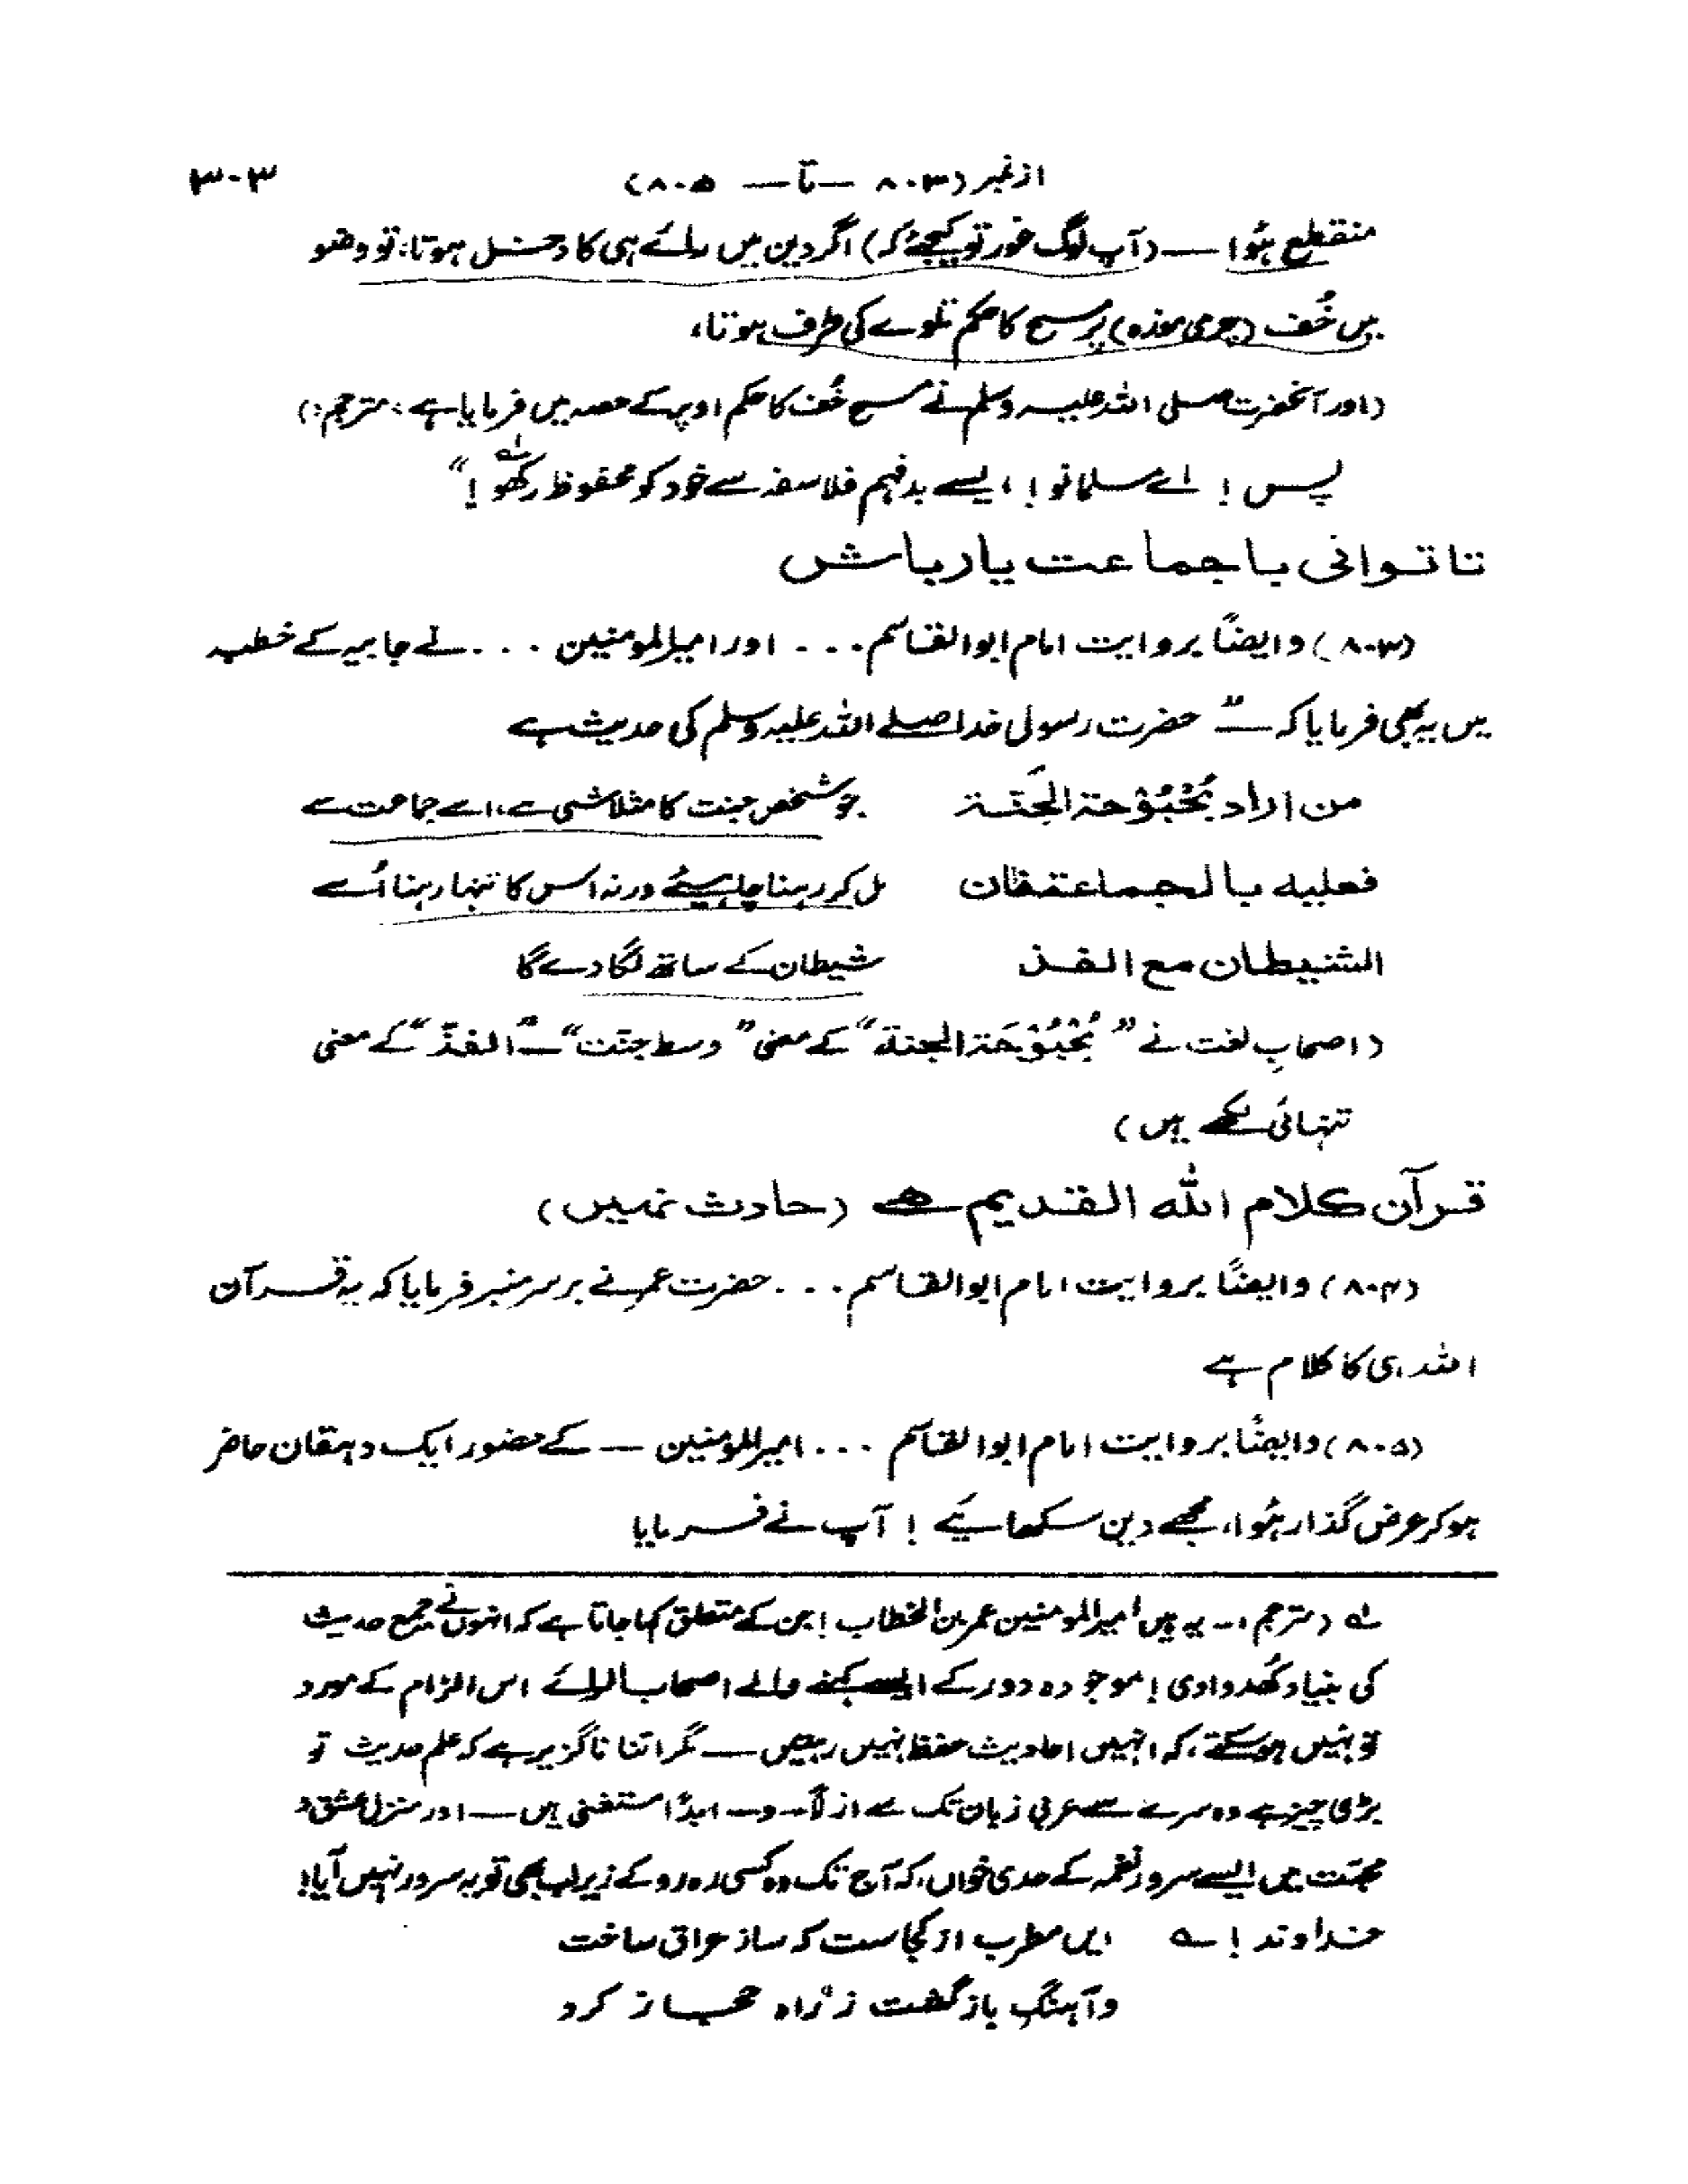 از نمبر (۸۰۳ — تا — ۸۰۵) ۳۰۳
منقطع ہُوا — (آپ لوگ غور تو کیجئے کہ) اگر دین میں رائے ہی کا دخل ہوتا: تو وضو
میں خُف (چرمی موزہ) پر مسح کا حکم تلوے کی طرف ہوتا،
(اور آنحضرت صلی اللہ علیہ وسلم نے مسح خُف کا حکم اوپر کے حصہ میں فرمایا ہے : مترجم :)
پس ! اے مسلمانو ! ایسے بدفہم فلاسفہ سے خود کو محفوظ رکھو لہ ! “
تا توانی با جماعت یار باش
(۸۰۳) وایضًا بروایت امام ابوالقاسم . . . اور امیرالمومنین . . . نے جابیہ کے خطبہ
میں یہ بھی فرمایا کہ — ” حضرت رسول خدا صلے اللہ علیہ وسلم کی حدیث ہے
من اراد بُحْبُوْحۃ الجَنّۃ جو شخص جنت کا متلاشی ہے، اسے جماعت سے
فعلیہ بالجماعۃ فان مل کر رہنا چاہیئے ورنہ اس کا تنہا رہنا اُسے
الشیطان مع الفذ شیطان کے ساتھ لگا دے گا
(اصحابِ لغت نے ” بُحْبُوْحَۃ الجنۃ “ کے معنی ” وسط جنّت “ — ” الفذّ “ کے معنی
تنہائی لکھے ہیں)
قرآن کلام اللہ القدیم ہے (حادث نہیں)
(۸۰۴) وایضًا بروایت امام ابوالقاسم . . . حضرت عمر نے برسر منبر فرمایا کہ یہ قرآن
اللہ ہی کا کلام ہے
(۸۰۵) وایضًا بروایت امام ابوالقاسم . . . امیرالمؤمنین — کے حضور ایک دہقان حاضر
ہو کر عرض گذار ہُوا، مجھے دین سکھائیے ! آپ نے فرمایا
لہ (مترجم :- یہ ہیں امیرالمومنین عمر بن الخطاب ! جن کے متعلق کہا جاتا ہے کہ انہوں نے جمع حدیث
کی بنیاد کُھدوا دی ! موجودہ دور کے ایسے کہنے والے اصحاب الرائے اس الزام کے مورد
تو نہیں ہو سکتے، کہ انہیں احادیث حفظ نہیں رہیں — مگر اتنا ناگزیر ہے کہ علم حدیث تو
بڑی چیز ہے وہ سرے سے عربی زبان تک سے ازلاً — و — ابدًا مستغنی ہیں — اور منزل عشق و
محبّت میں ایسے سرود نغمہ کے حدی خواں، کہ آج تک وہ کسی رہ رو کے زیر لب بھی تو یہ سرود نہیں آیا !
خداوند ! ؎ ایں مطرب از کجاست کہ ساز عراق ساخت
و آہنگِ باز گشت ز راہ حجاز کرد